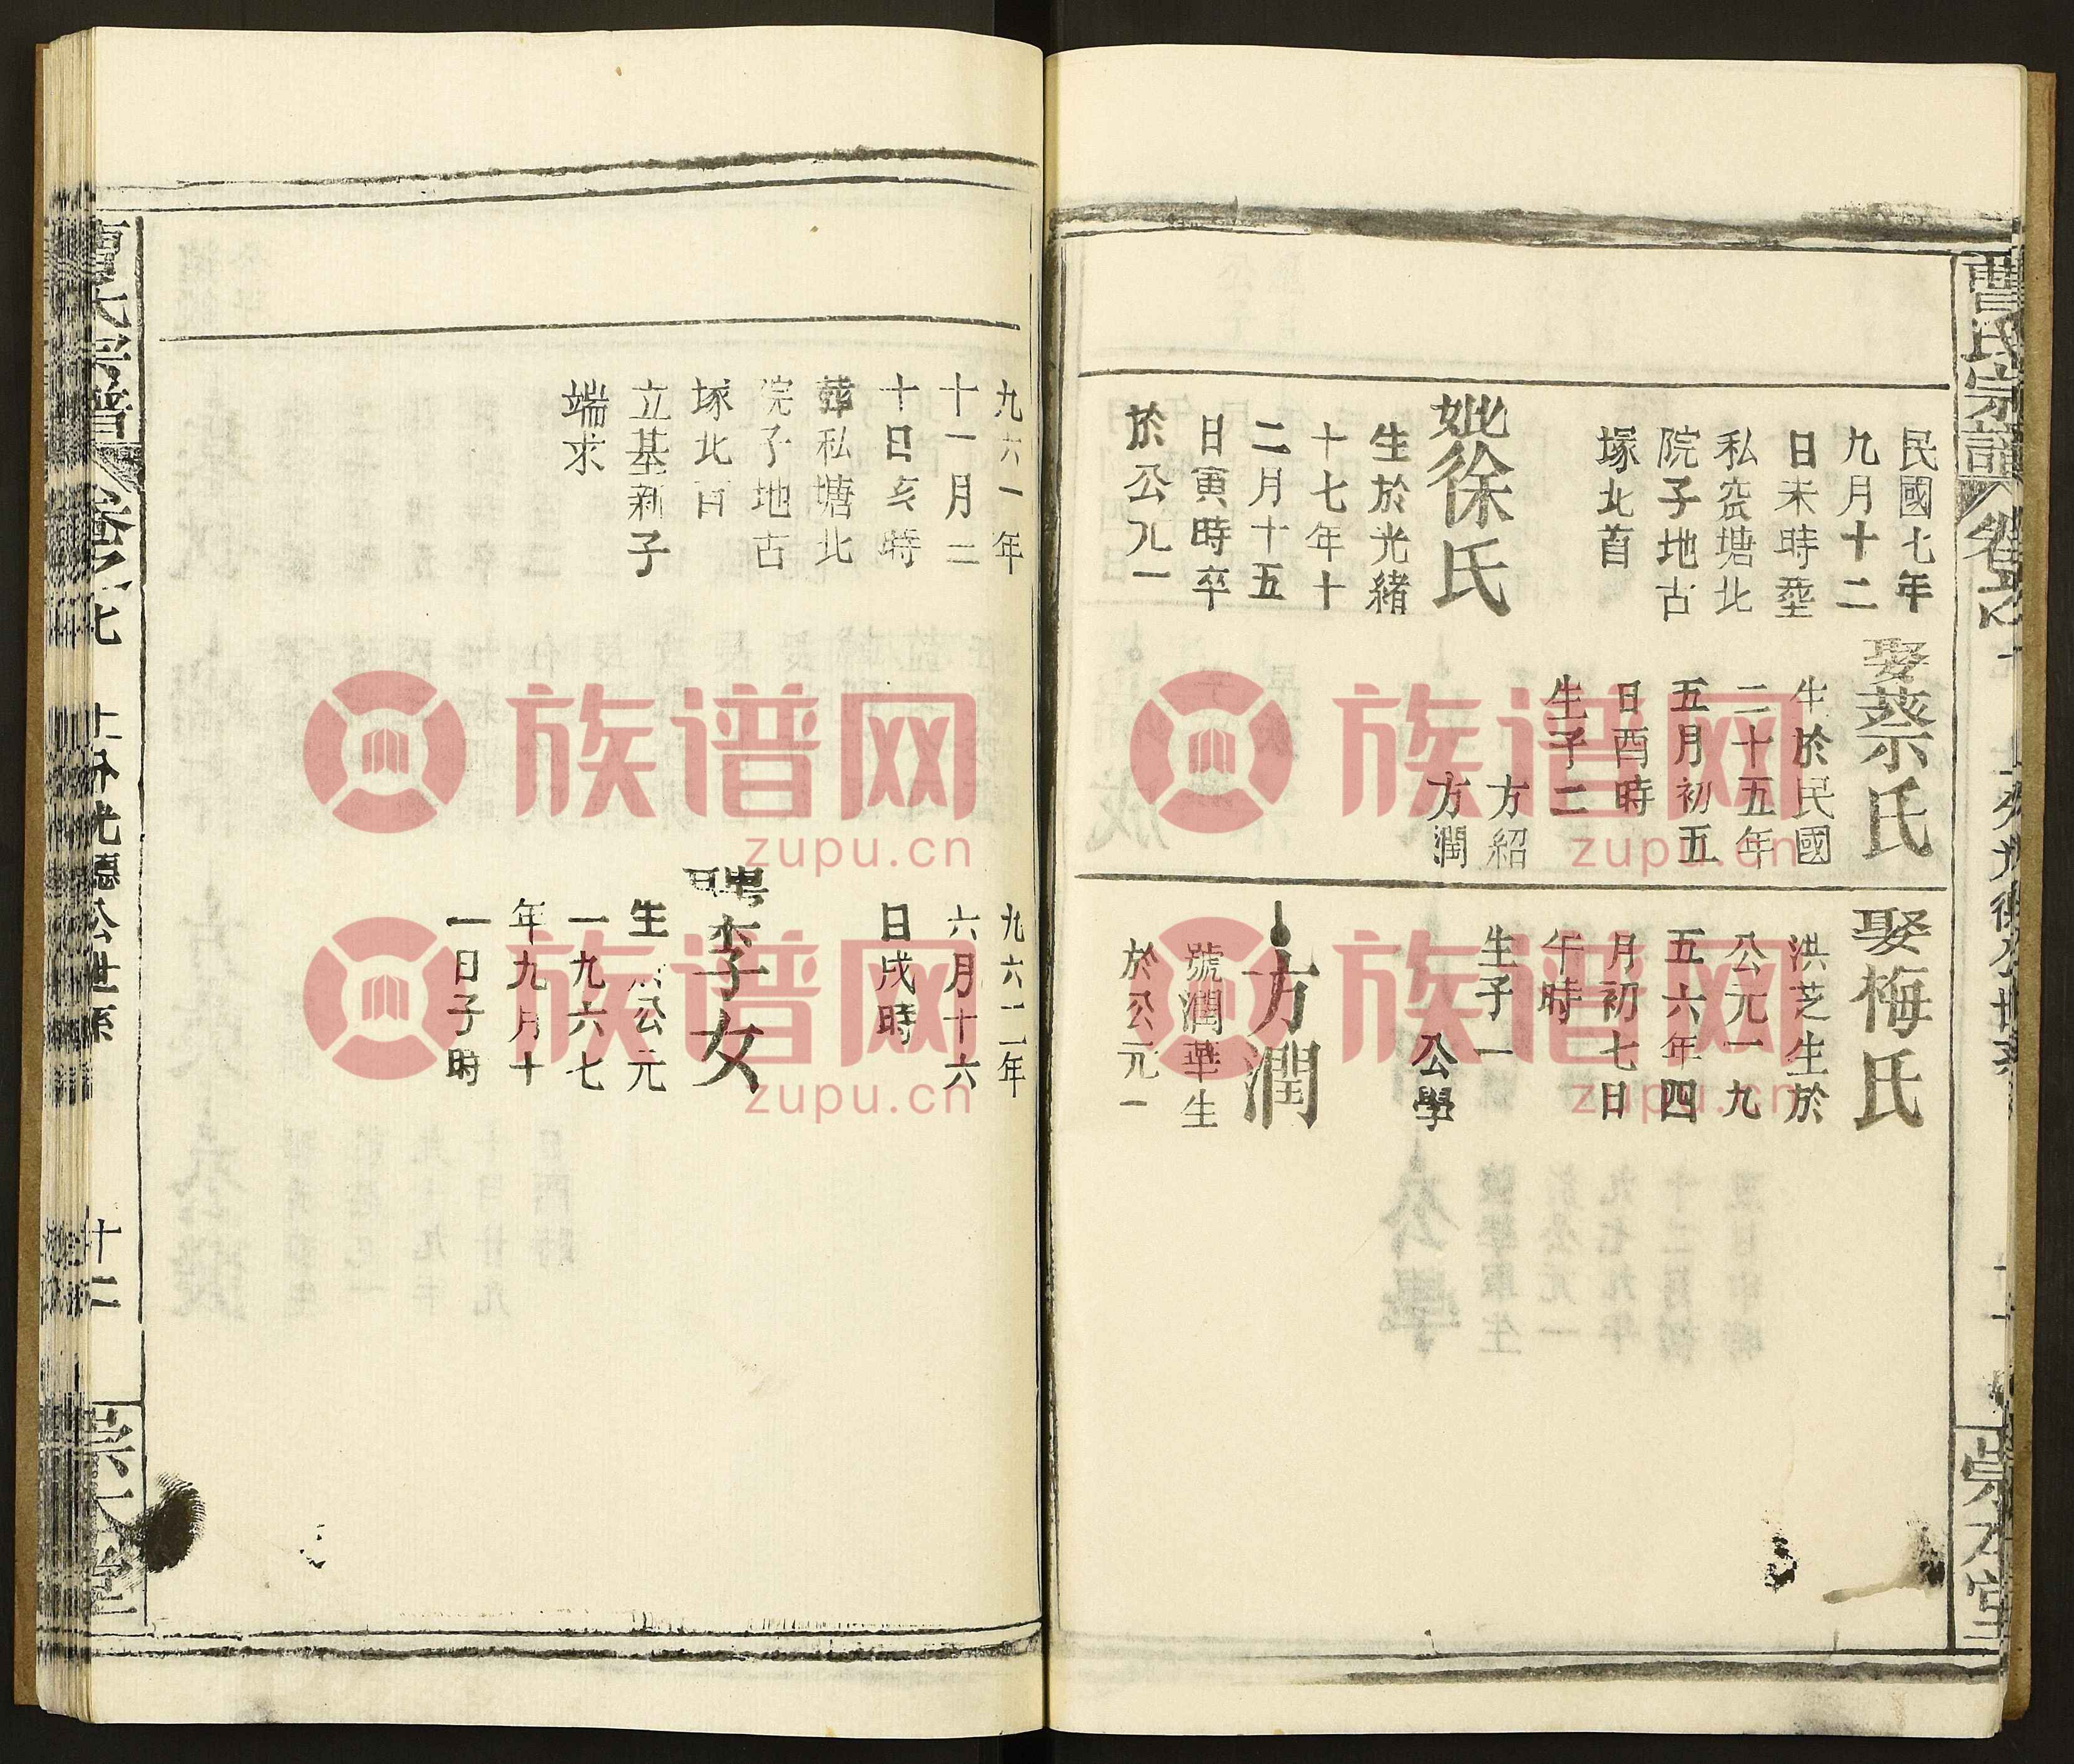 曹氏宗譜
民國七年
九月十二
日未時塟
私窊塘北
院子地古
塚北首
妣徐氏
生於光緒
十七年十
二月十五
日寅時卒
於公元一
娶蔡氏
生於民國
二十五年
五月初五
日酉時
生子二
方紹
方潤
娶梅氏
洪芝生於
公元一九
五六年四
月初七日
午時
生子一
公學
方潤
號潤華生
於公元一
九六一年
十一月二
十日亥時
葬私塘北
院子地古
塚北首
立基新子
端求
九六二年
六月十六
日戌時
聘李女
生於公元
一九六七
年九月十
一日子時
曹氏宗譜
十二
族谱网
zupu.cn
族谱网
zupu.cn
族谱网
zupu.cn
族谱网
zupu.cn